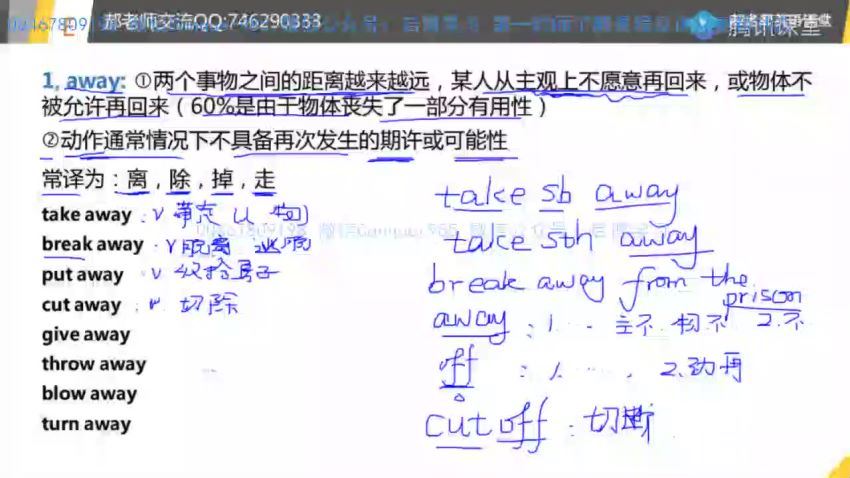 郝老师交流QQ:746290333
腾讯课堂
1, away: ①两个事物之间的距离越来越远，某人从主观上不愿意再回来，或物体不
被允许再回来（60%是由于物体丧失了一部分有用性）
②动作通常情况下不具备再次发生的期许或可能性
常译为：离，除，掉，走
take away : v 带走 (人 物)
break away v 脱离 逃脱
put away : v 收拾房子
cut away : v 切除
give away
throw away
blow away
turn away
take sb away
take sth away
break away from the prison
away : 1. … 主不 物不 2.不
off : 1. …. 2.动再
cut off : 切断